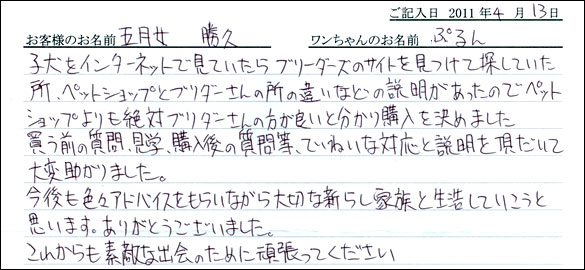 ご記入日 2011年4月13日
お客様のお名前 五月女 勝久 ワンちゃんのお名前 ぷるん
子犬をインターネットで見ていたらブリーダーズのサイトを見つけて探していた
所、ペットショップとブリダーさんの所の違いなどの説明があったのでペット
ショップよりも絶対ブリダーさんの方が良いと分かり購入を決めました
買う前の質問、見学、購入後の質問等、ていねいな対応と説明を頂だいて
大変助かりました。
今後も色々アドバイスをもらいながら大切な新らし家族と生活していこうと
思います。ありがとうございました。
これからも素敵な出会のために頑張ってください